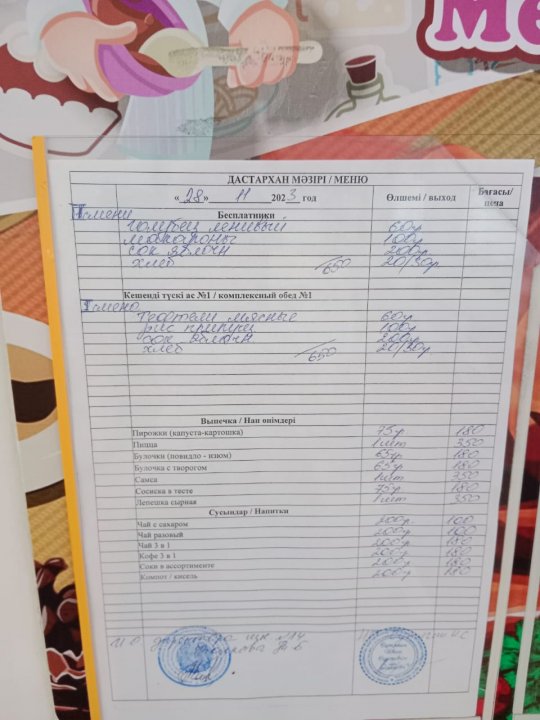 Ме
ДАСТАРХАН МӘЗІРІ / МЕНЮ
«28» 11 2023 год Өлшемі / выход Бағасы/ цена
I смена Бесплатники
голубец ленивый 60г
макароны 100г
сок яблочн 200г
хлеб /650 20/30г
Кешенді түскі ас №1 / комплексный обед №1
II смена
Тефтели мясные 60г
рис припущ 100г
сок яблочн 200г
хлеб /650 20/30г
Выпечка / Нан өнімдері
Пирожки (капуста-картошка) 75г 180
Пицца 1шт 350
Булочки (повидло - изюм) 65г 180
Булочка с творогом 65г 180
Самса 1шт 350
Сосиска в тесте 75г 180
Лепешка сырная 1шт 350
Сусындар / Напитки
Чай с сахаром 200г 100
Чай разовый 200г 100
Чай 3 в 1 200г 180
Кофе 3 в 1 200г 180
Соки в ассортименте 200г 180
Компот / кисель 200г 180
И.О. директора